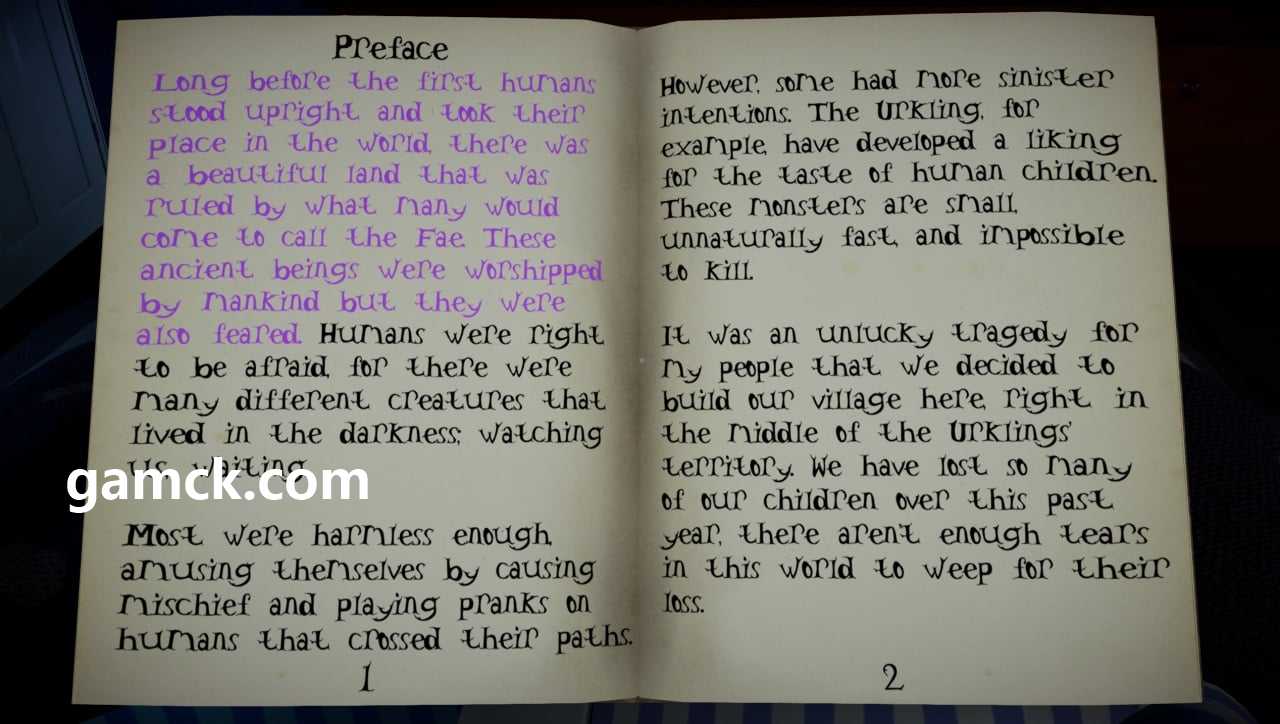 Preface
Long before the first humans
stood upright and took their
place in the world, there was
a beautiful land that was
ruled by what many would
come to call the Fae. These
ancient beings were worshipped
by mankind but they were
also feared. Humans were right
to be afraid, for there were
many different creatures that
lived in the darkness; watching
us, waiting.
gamck.com
Most were harmless enough,
amusing themselves by causing
mischief and playing pranks on
humans that crossed their paths.
1
However, some had more sinister
intentions. The Urkling, for
example, have developed a liking
for the taste of human children.
These monsters are small,
unnaturally fast, and impossible
to kill.
It was an unlucky tragedy for
my people that we decided to
build our village here, right in
the middle of the Urklings'
territory. We have lost so many
of our children over this past
year, there aren't enough tears
in this world to weep for their
loss.
2